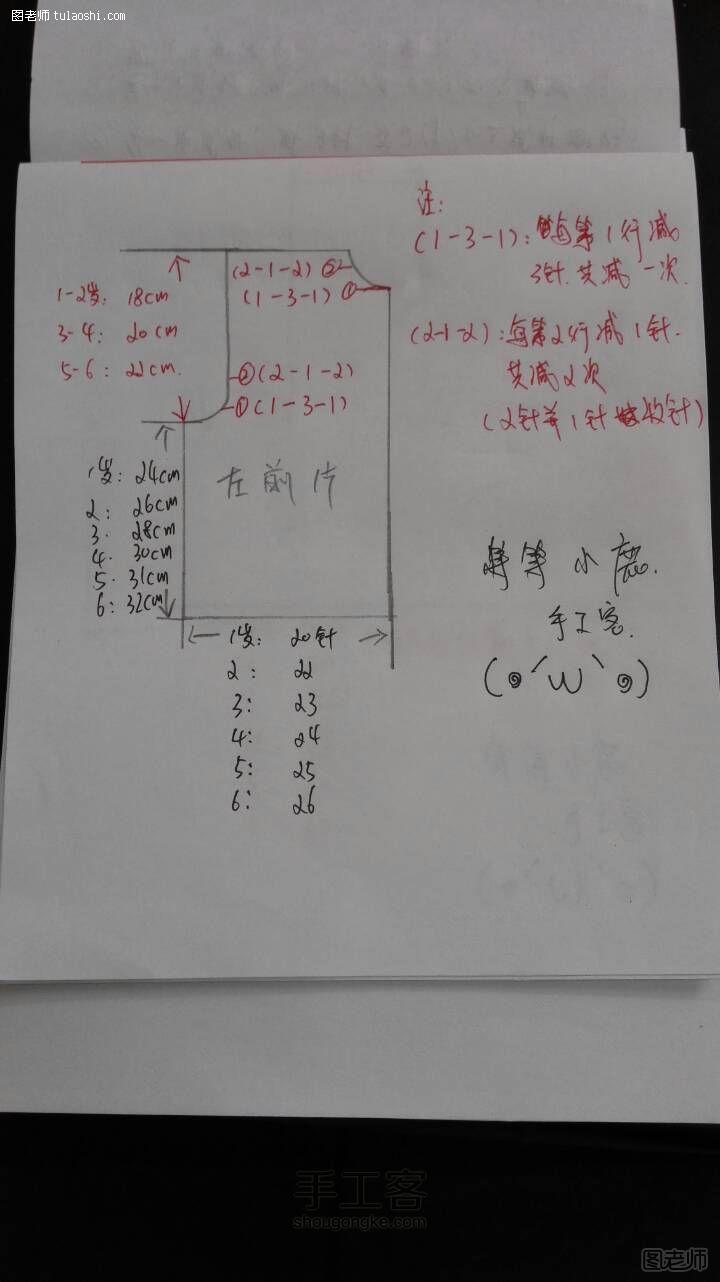 图老师 tulaoshi.com
注:
(1-3-1): 每第1行减
3针.共减一次.
(2-1-2): 每第2行减1针.
共减2次
(2针并1针收针)
(2-1-2) ②
(1-3-1) ①
1-2岁: 18cm
3-4: 20cm
5-6: 22cm.
②(2-1-2)
①(1-3-1)
左前片
1岁: 24cm
2: 26cm
3. 28cm
4. 30cm
5. 31cm
6: 32cm
1岁: 20针
2: 22
3: 23
4: 24
5: 25
6: 26
等等小鹿.
手工客.
(๑´ω`๑)
手工客
shougongke.com
图老师